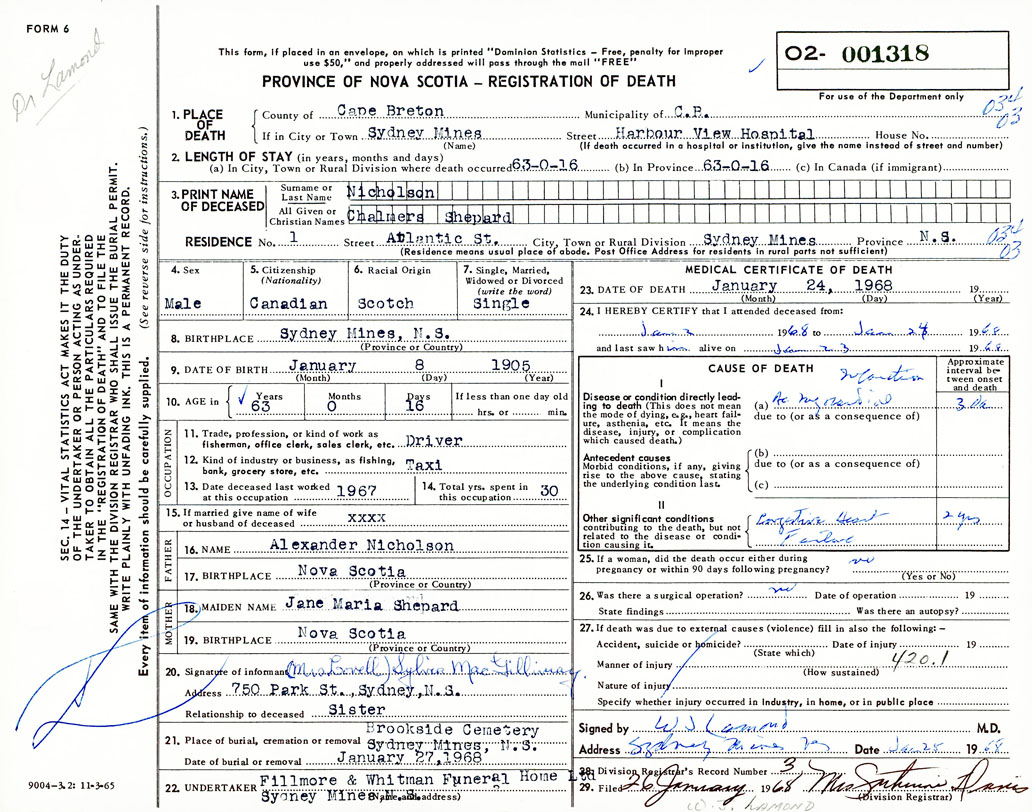 FORM 6
Dr Lamond
This form, if placed in an envelope, on which is printed "Dominion Statistics – Free, penalty for improper
use $50," and properly addressed will pass through the mail "FREE"
O2- 001318
For use of the Department only
PROVINCE OF NOVA SCOTIA – REGISTRATION OF DEATH
034
03
1. PLACE OF DEATH
County of Cape Breton Municipality of C.B.
If in City or Town Sydney Mines Street Harbour View Hospital House No.
(Name) (If death occurred in a hospital or institution, give the name instead of street and number)
2. LENGTH OF STAY (in years, months and days)
(a) In City, Town or Rural Division where death occurred 63-0-16 (b) In Province 63-0-16 (c) In Canada (if immigrant)
3. PRINT NAME OF DECEASED
Surname or Last Name Nicholson
All Given or Christian Names Chalmers Shepard
RESIDENCE No. 1 Street Atlantic St. City, Town or Rural Division Sydney Mines Province N.S.
(Residence means usual place of abode. Post Office Address for residents in rural parts not sufficient)
034
03
4. Sex
Male
5. Citizenship
(Nationality)
Canadian
6. Racial Origin
Scotch
7. Single, Married,
Widowed or Divorced
(write the word)
Single
8. BIRTHPLACE Sydney Mines, N.S.
(Province or Country)
9. DATE OF BIRTH January 8 1905
(Month) (Day) (Year)
10. AGE in Years 63 Months 0 Days 16 If less than one day old
hrs. or min.
OCCUPATION
11. Trade, profession, or kind of work as
fisherman, office clerk, sales clerk, etc. Driver
12. Kind of industry or business, as fishing,
bank, grocery store, etc. Taxi
13. Date deceased last worked
at this occupation 1967
14. Total yrs. spent in
this occupation 30
15. If married give name of wife
or husband of deceased xxxx
FATHER
16. NAME Alexander Nicholson
17. BIRTHPLACE Nova Scotia
(Province or Country)
MOTHER
18. MAIDEN NAME Jane Maria Shepard
19. BIRTHPLACE Nova Scotia
(Province or Country)
20. Signature of informant (Mrs Lovell) Sylvia MacGillivray
Address 750 Park St., Sydney, N.S.
Relationship to deceased Sister
21. Place of burial, cremation or removal Brookside Cemetery
Sydney Mines, N.S.
Date of burial or removal January 27, 1968
22. UNDERTAKER Fillmore & Whitman Funeral Home Ltd
Sydney Mines
(Name and address)
MEDICAL CERTIFICATE OF DEATH
23. DATE OF DEATH January 24, 1968 19
(Month) (Day) (Year)
24. I HEREBY CERTIFY that I attended deceased from:
Jan 2 1968 to Jan 24 1968
and last saw him alive on Jan 23 1968
CAUSE OF DEATH
Approximate
interval between onset
and death
I
Disease or condition directly leading
to death (This does not mean
the mode of dying, e.g., heart failure,
asthenia, etc. It means the
disease, injury, or complication
which caused death.)
(a) Ac Myocardial Infarction 3 Da
due to (or as a consequence of)
Antecedent causes
Morbid conditions, if any, giving
rise to the above cause, stating
the underlying condition last.
(b)
due to (or as a consequence of)
(c)
II
Other significant conditions
contributing to the death, but not
related to the disease or condition
causing it.
Congestive Heart
Failure
2 yrs
25. If a woman, did the death occur either during
pregnancy or within 90 days following pregnancy? no
(Yes or No)
26. Was there a surgical operation? no Date of operation 19
State findings Was there an autopsy?
27. If death was due to external causes (violence) fill in also the following: –
Accident, suicide or homicide? Date of injury 19
(State which)
Manner of injury 420.1
(How sustained)
Nature of injury
Specify whether injury occurred in Industry, in home, or in public place
Signed by W J Lamond M.D.
Address Sydney Mines Date Jan 25 1968
28. Division Registrar's Record Number 3
29. Filed 26 January 1968 Mrs Davis
(Division Registrar)
W. J. LAMOND
SEC. 14 – VITAL STATISTICS ACT MAKES IT THE DUTY
OF THE UNDERTAKER OR PERSON ACTING AS UNDER-
TAKER TO OBTAIN ALL THE PARTICULARS REQUIRED
IN THE "REGISTRATION OF DEATH" AND TO FILE THE
SAME WITH THE DIVISION REGISTRAR WHO SHALL ISSUE THE BURIAL PERMIT.
WRITE PLAINLY WITH UNFADING INK. THIS IS A PERMANENT RECORD.
Every item of information should be carefully supplied. (See reverse side for instructions.)
9004-3.2: 11-3-65